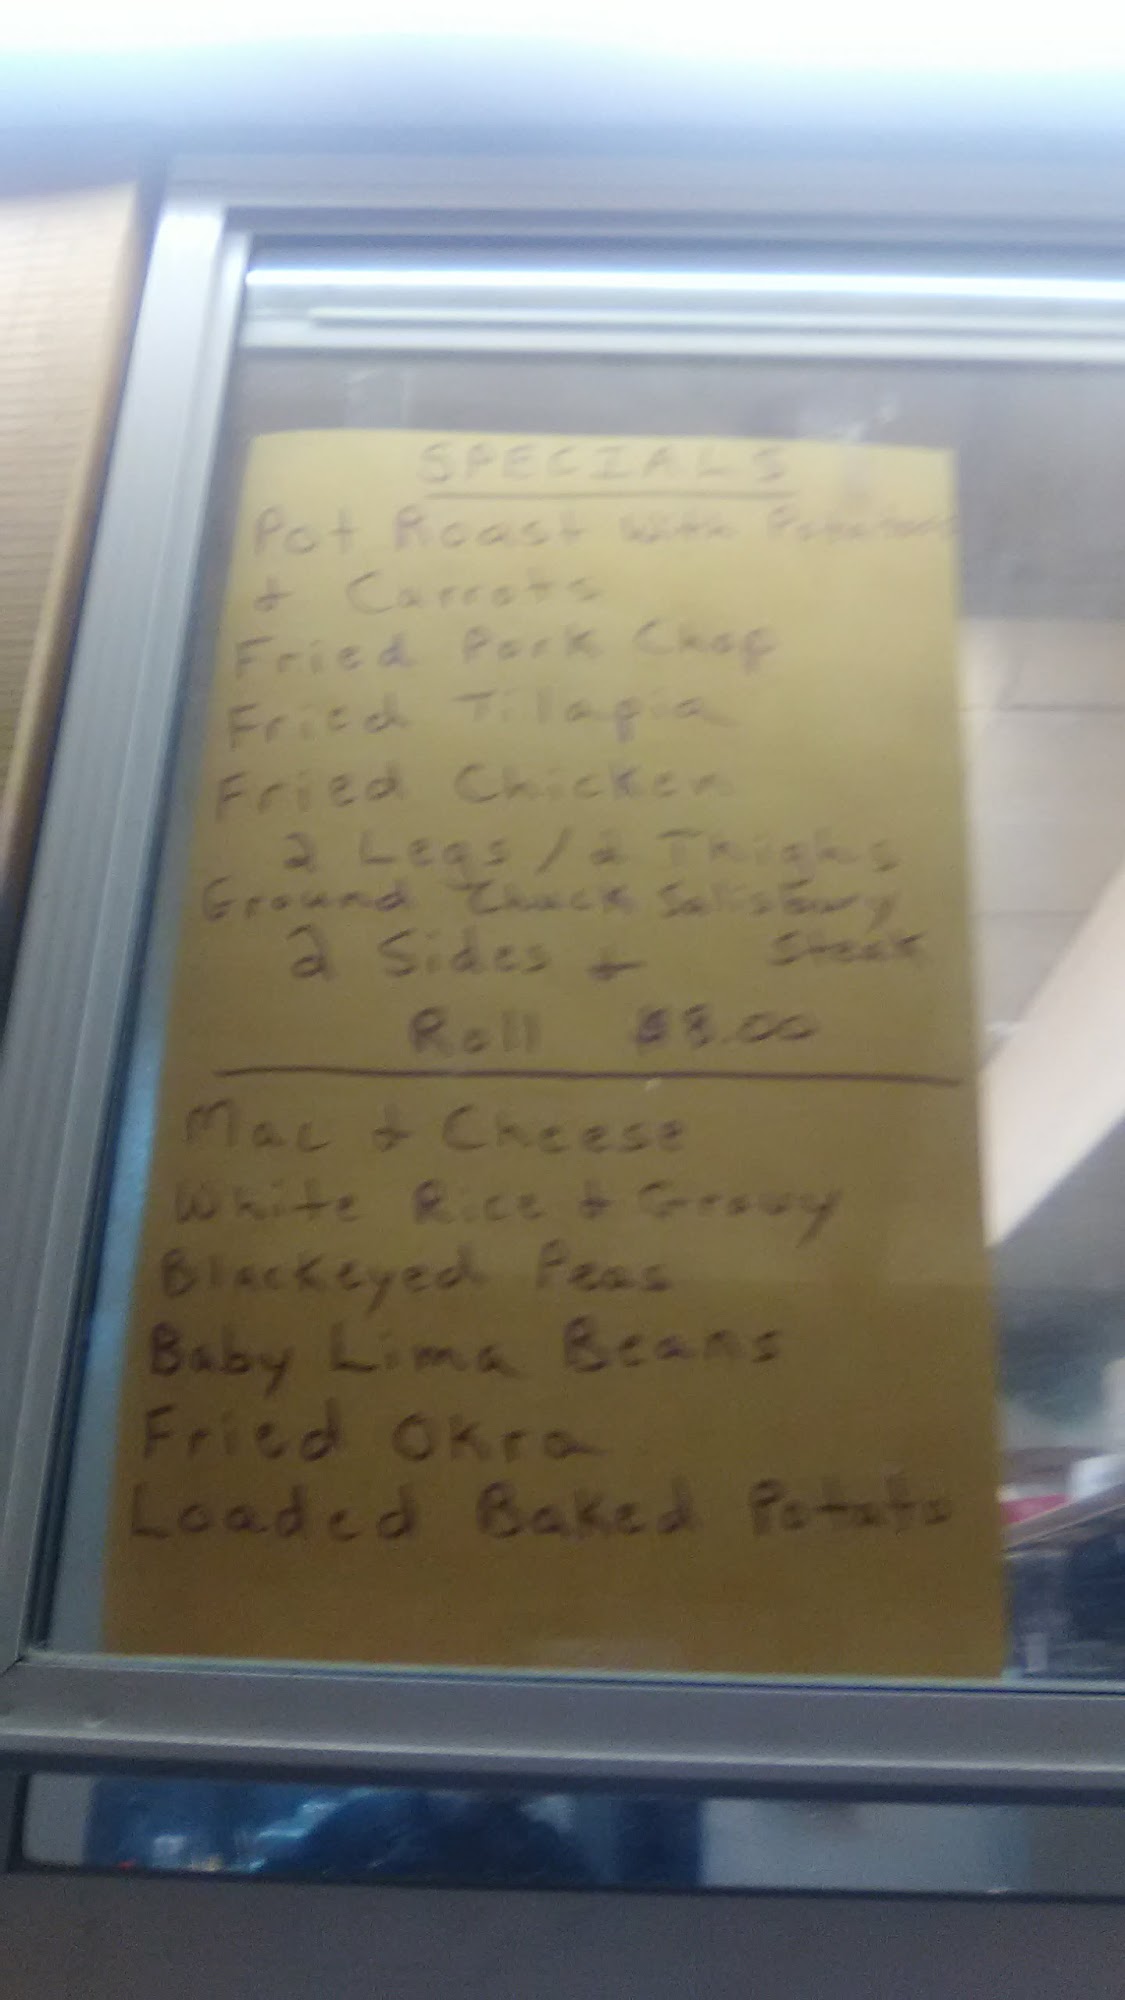 SPECIALS
Pot Roast with Potatoes
& Carrots
Fried Pork Chop
Fried Tilapia
Fried Chicken
2 Legs / 2 Thighs
Ground Chuck Salisbury
2 Sides + Steak
Roll $8.00
Mac & Cheese
White Rice & Gravy
Blackeyed Peas
Baby Lima Beans
Fried Okra
Loaded Baked Potato